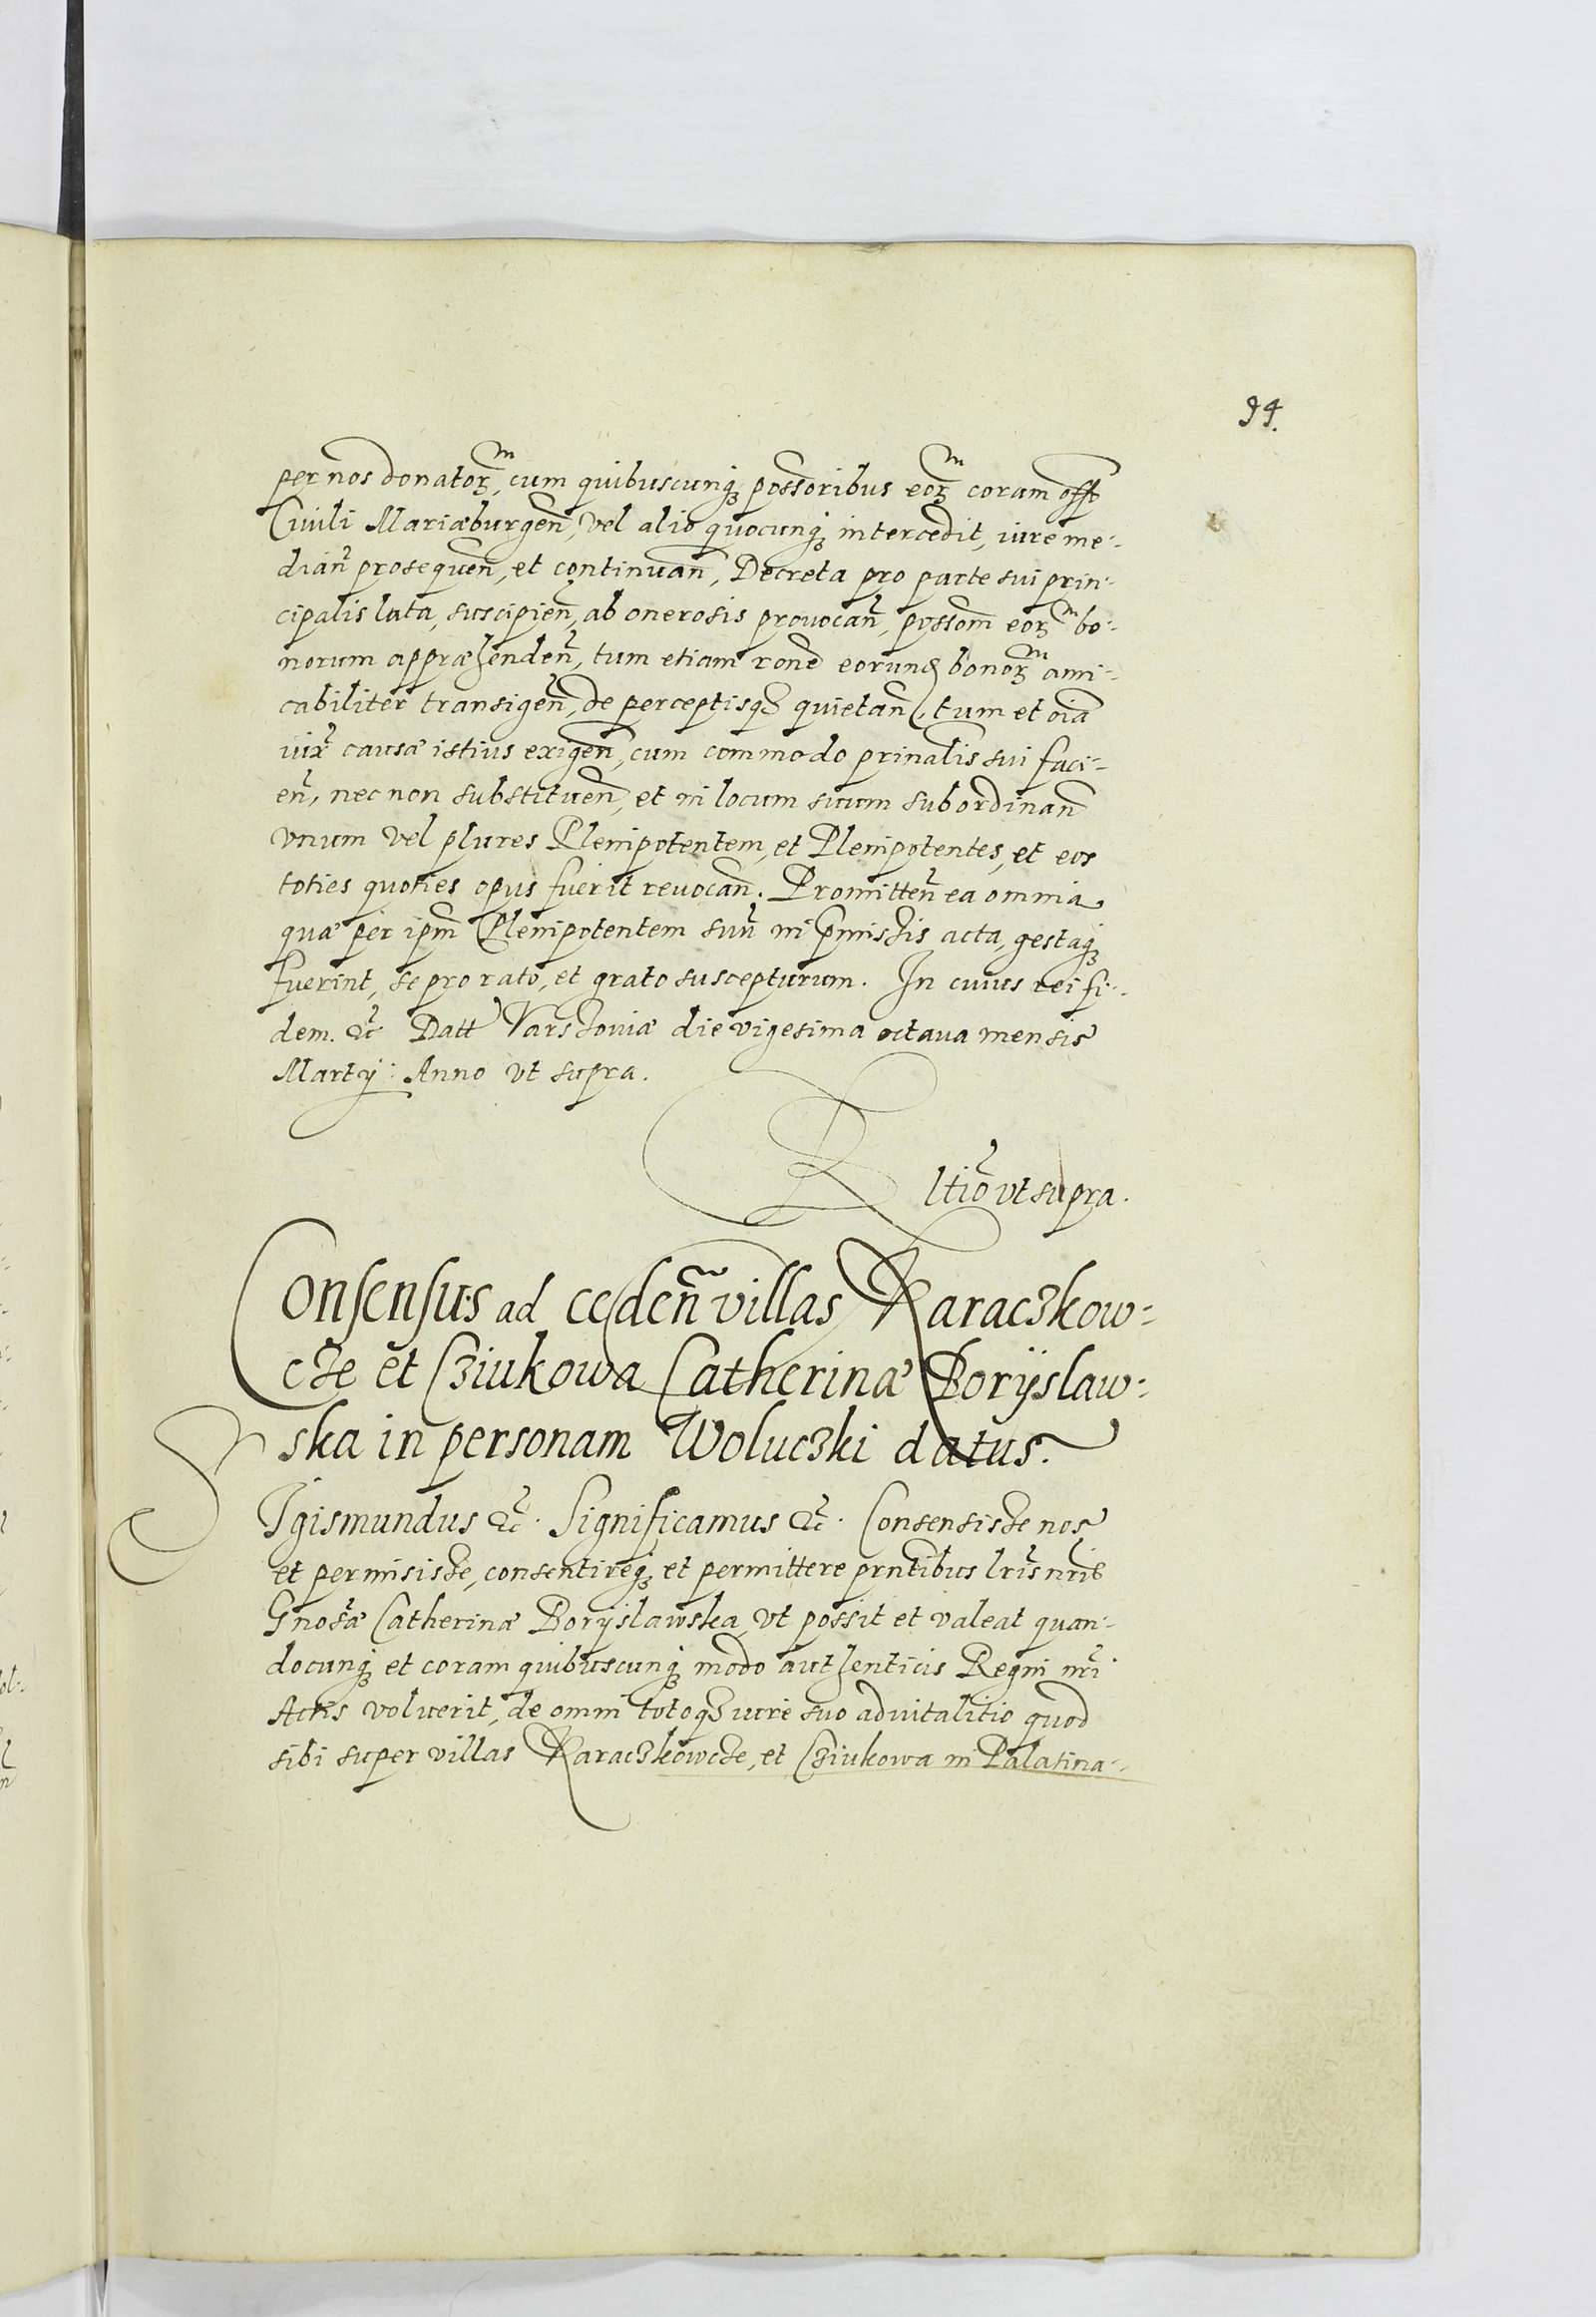 94.
per nos donatoꝝ, cum quibuscunqꝫ possoribus eoꝝ coram offo
Ciuili Mariæburgen̄, vel alio quocunqꝫ intercedit, iure me-
dian̄ prosequen̄, et continuan̄, Decreta pro parte sui prin-
cipalis lata, suscipien̄, ab onerosis prouocan̄, possom̄ eoꝝ bo-
norum appræhenden̄, tum etiam rone eorund bonoꝝ ami-
cabiliter transigen̄, de perceptisqꝫ quietan̄, tum et oia
iux causæ istius exigen̄, cum commodo prinalis sui faci-
en̄, nec non substituen̄, et in locum suum subordinan̄
vnum vel plures Plenipotentem, et Plenipotentes, et eos
toties quoties opus fuerit reuocan̄. Promitten̄ ea omnia
quæ per ipm̄ Plenipotentem suū in p̄missis acta, gestaqꝫ
fuerint, se pro rato, et grato suscepturum. In cuius rei fi-
dem. &c̄ Datt Varssouiæ die vigesima octaua mensis
Martij Anno vt supra.
Rltio vt supra.
Consensus ad ceden̄ villas Karaczkow-
cze et Cziukowa Catherinæ Borÿslaw-
ska in personam Woluczki datus.
SIgismundus &c̄. Significamus &c̄. Consensisse nos
et permisisse, consentireqꝫ et permittere prntibus lris nris
Gnosæ Catherinæ Borÿslawska, vt possit et valeat quan-
docunqꝫ et coram quibuscunqꝫ modo authenticis Regni nri
Actis voluerit, de omni totoqꝫ iure suo aduitalitio quod
sibi super villas Karaczkowcze, et Cziukowa in Palatina-